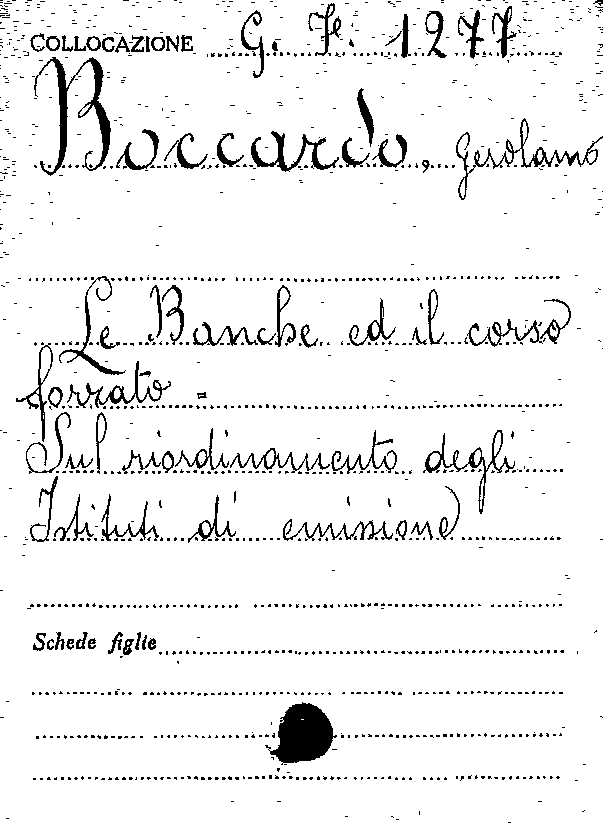 COLLOCAZIONE G. F. 1277
Boccardo, Gerolamo
Le Banche ed il corso
forzato =
Sul riordinamento degli
Istituti di emissione
Schede figlie